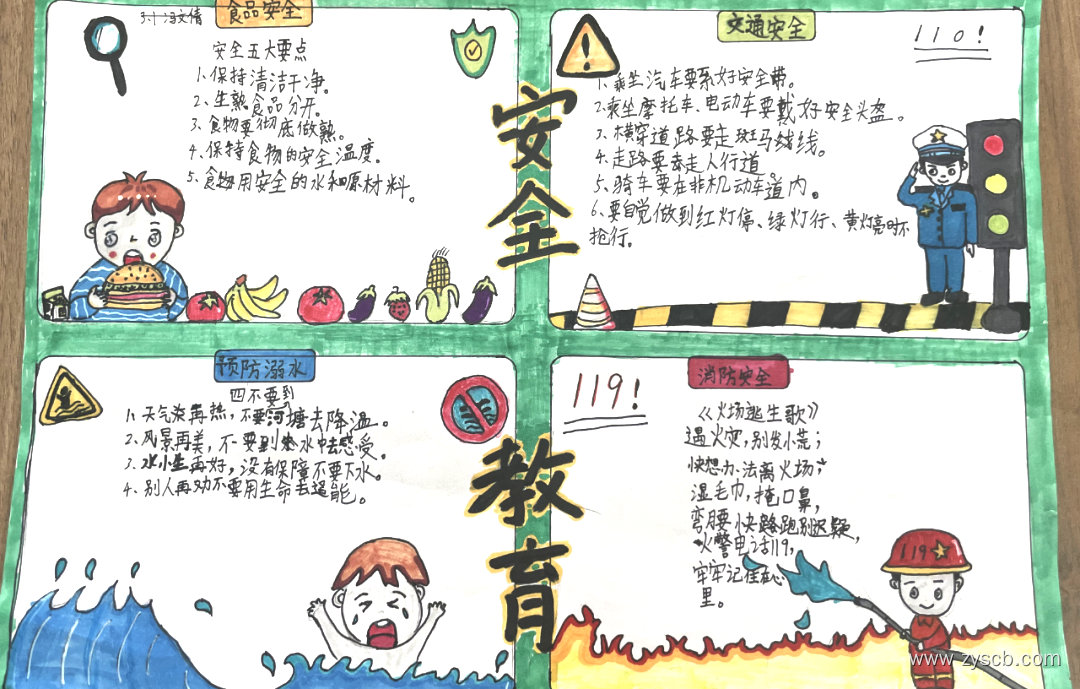 3.1 冯文倩
食品安全
安全五大要点
1、保持清洁干净。
2、生熟食品分开。
3、食物要彻底做熟。
4、保持食物的安全温度。
5、食物用安全的水和原材料。
交通安全
110!
1、乘坐汽车要系好安全带。
2、乘坐摩托车、电动车要戴好安全头盔。
3、横穿道路要走斑马线。
4、走路要走人行道。
5、骑车要在非机动车道内。
6、要自觉做到红灯停、绿灯行、黄灯亮时不
抢行。
安全
教育
预防溺水
四不要到
1、天气炎再热，不要河塘去降温。
2、风景再美，不要到水中去感受。
3、水小生再好，没有保障不要下水。
4、别人再劝不要用生命去逞能。
消防安全
119!
《火场逃生歌》
遇火灾，别发小荒；
快想办法离火场；
湿毛巾，掩口鼻，
弯腰快跑别迟疑，
火警电话119，
牢牢记住在心
里。
119
www.zyscb.com